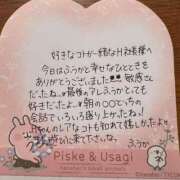 好きなコトが一緒なHお兄様へ
今日はふうかと幸せなひとときを
ありがとうございました 敏感さん
だったね、最後のアレふうかとても
好きだったよ 朝の○○でっちの
会話でいろいろ盛り上がったね!
Hちゃんのレアなコトも知れて嬉しかった
びに来て下さいな。
ふうか
Piske & Usagi